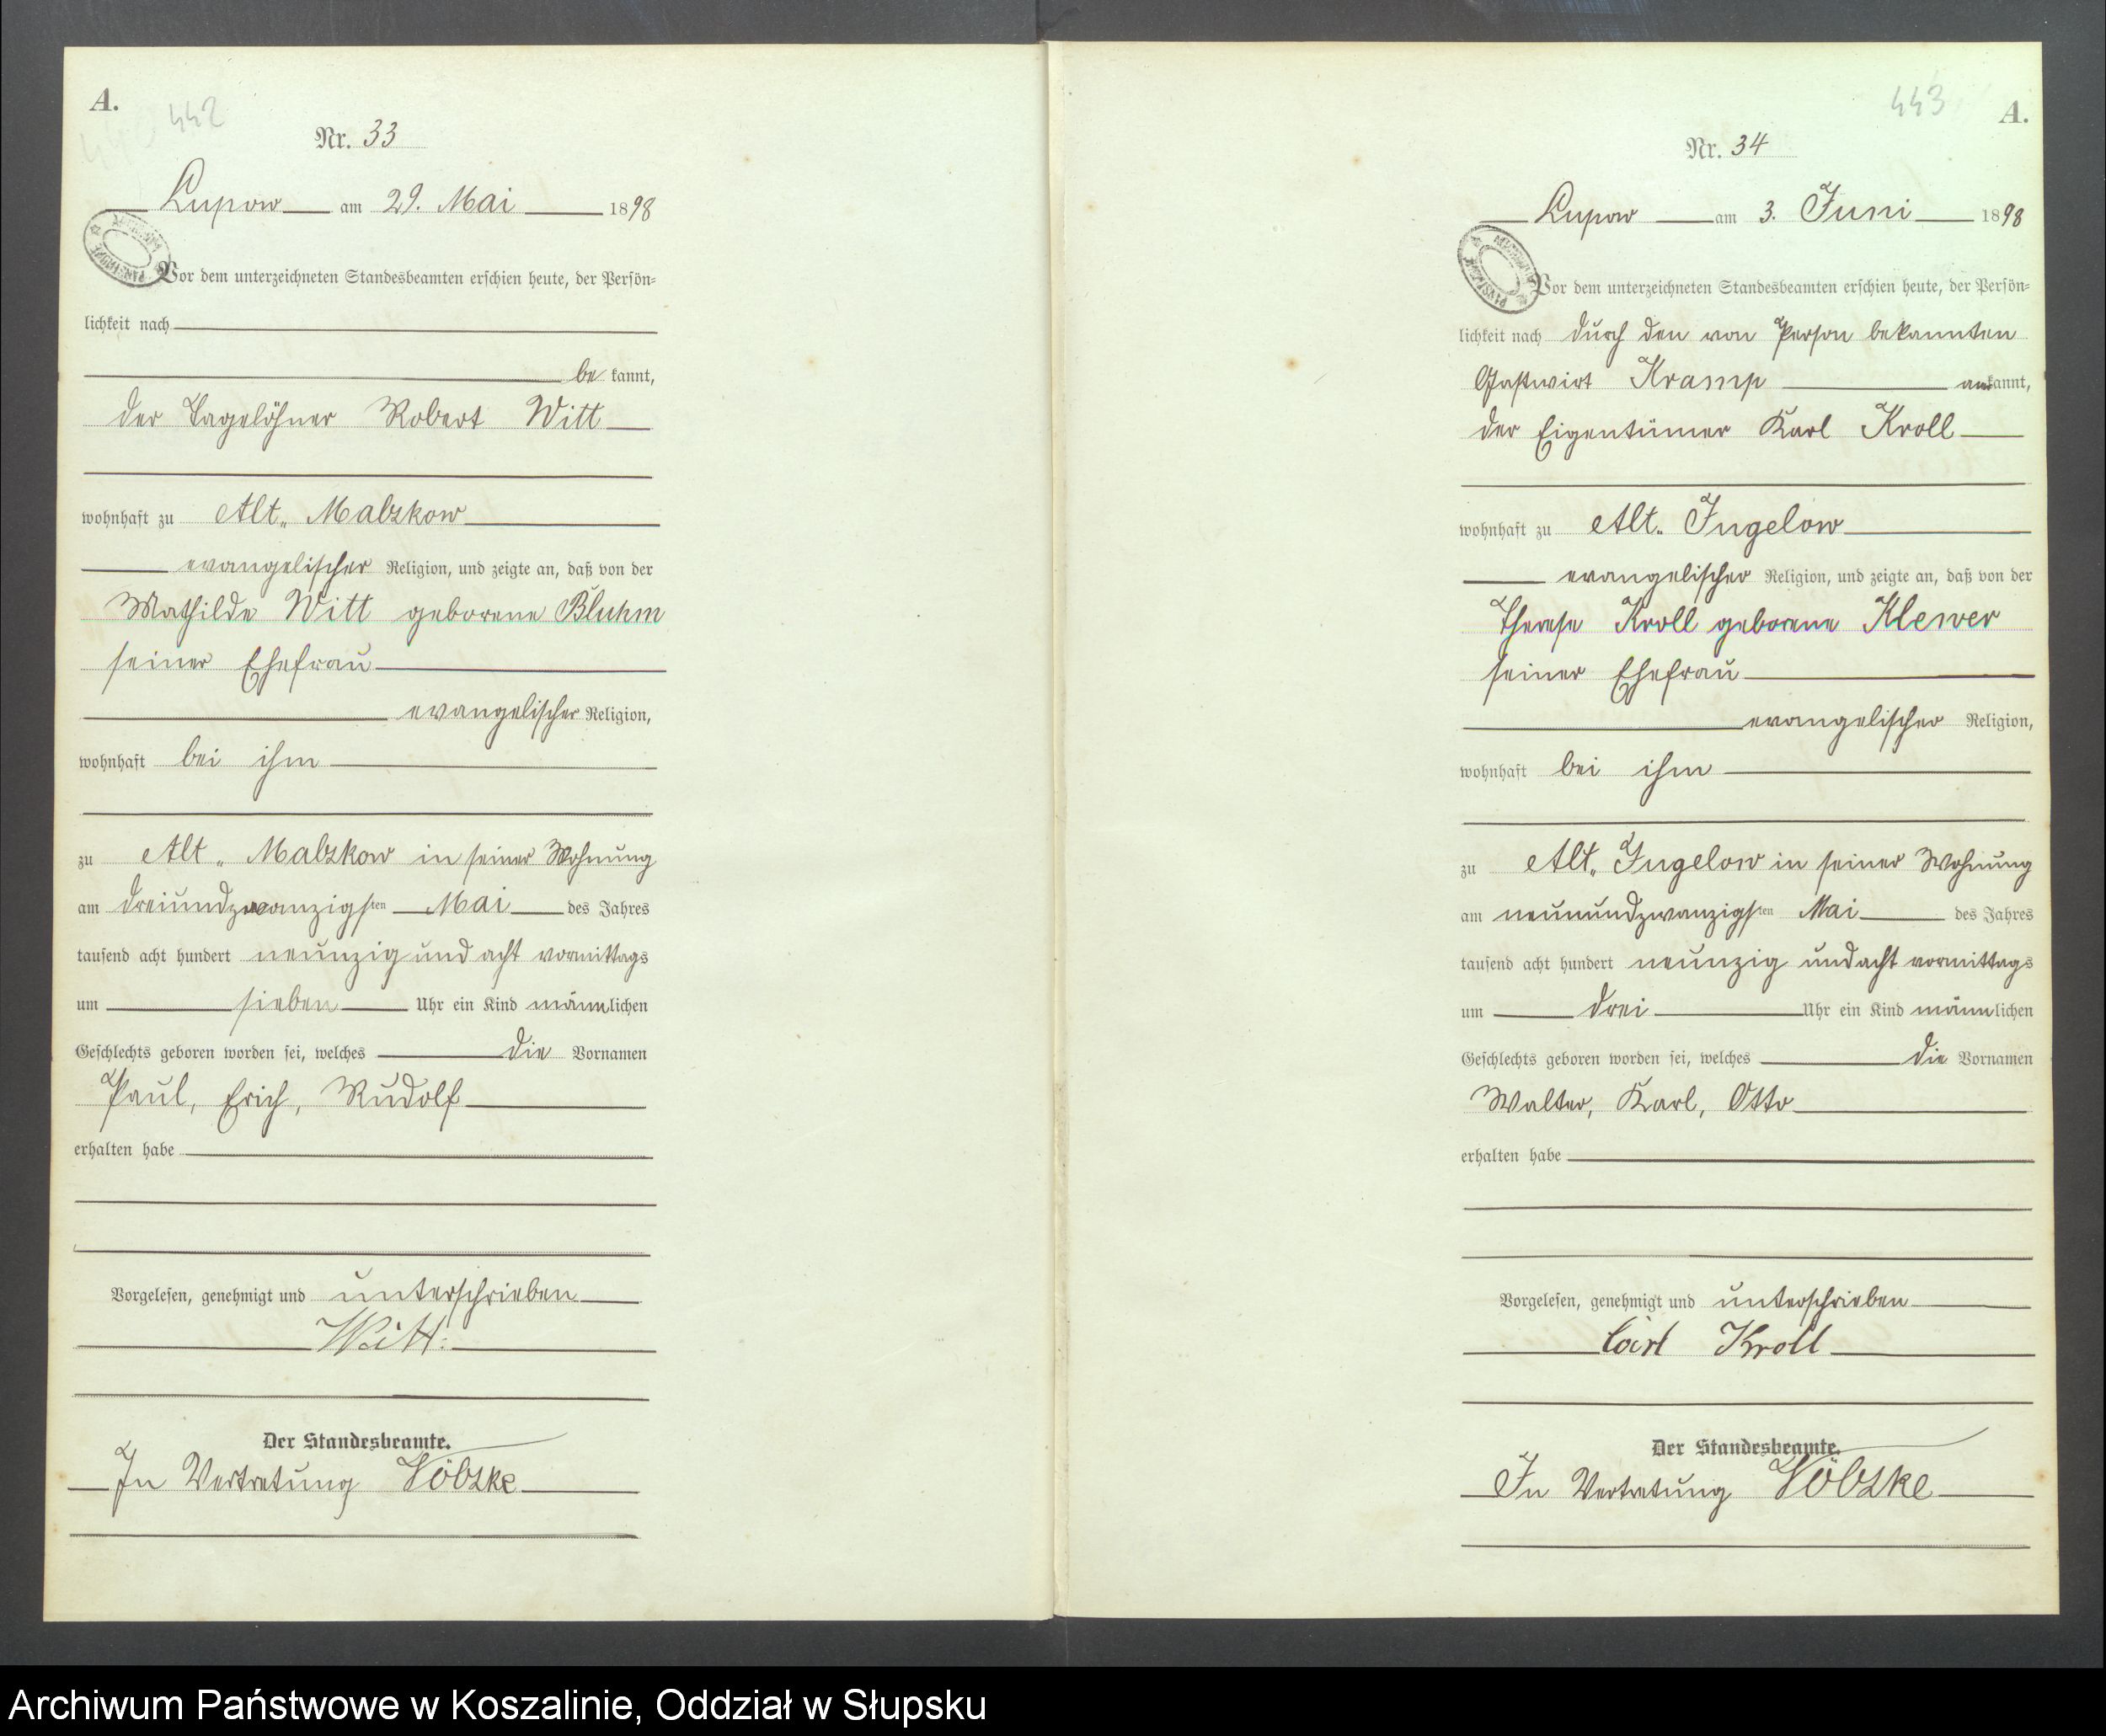 A.
442
Nr. 33
Lupow am 29. Mai 1898
Vor dem unterzeichneten Standesbeamten erschien heute, der Persön-
lichkeit nach
be kannt,
der Tagelöhner Robert Witt
wohnhaft zu Alt„ Malzkow
evangelischer Religion, und zeigte an, daß von der
Mathilde Witt geborene Bluhm
seiner Ehefrau
evangelischer Religion,
wohnhaft bei ihm
zu Alt„ Malzkow in seiner Wohnung
am dreiundzwanzigsten Mai des Jahres
tausend acht hundert neunzig und acht vormittags
um sieben Uhr ein Kind männlichen
Geschlechts geboren worden sei, welches die Vornamen
Paul, Erich, Rudolf
erhalten habe
Vorgelesen, genehmigt und unterschrieben
Witt.
Der Standesbeamte.
In Vertretung
443
A.
Nr. 34
Lupow am 3. Juni 1898
Vor dem unterzeichneten Standesbeamten erschien heute, der Persön-
lichkeit nach durch den von Person bekannten
Gastwirt Kramp anerkannt,
der Eigentümer Karl Kroll
wohnhaft zu Alt„ Jugelow
evangelischer Religion, und zeigte an, daß von der
Therese Kroll geborene Klewer
seiner Ehefrau
evangelischer Religion,
wohnhaft bei ihm
zu Alt„ Jugelow in seiner Wohnung
am neunundzwanzigsten Mai des Jahres
tausend acht hundert neunzig und acht vormittags
um drei Uhr ein Kind männlichen
Geschlechts geboren worden sei, welches die Vornamen
Walter, Karl, Otto
erhalten habe
Vorgelesen, genehmigt und unterschrieben
Carl Kroll
Der Standesbeamte.
In Vertretung
Archiwum Państwowe w Koszalinie, Oddział w Słupsku